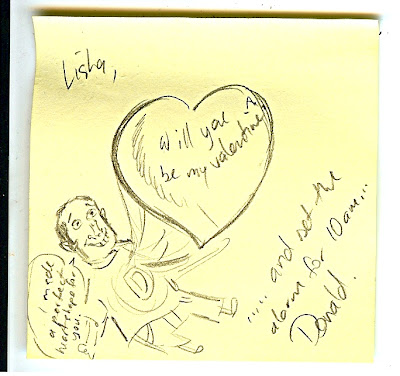 Lisha,
Will you
be my valentine?
D
I made
a perfect
heart shape for
you.
..... and set the
alarm for 10 am...
Donald.